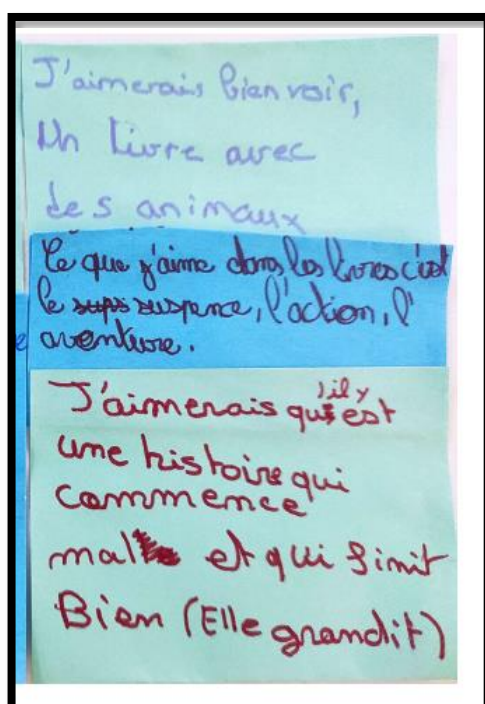 J'aimerais bien voir,
Un livre avec
des animaux
Ce que j'aime dans les livres c'est
le sups suspence, l'action, l'
aventure.
J'aimerais qu'il y est
une histoire qui
commence
mal et qui finit
Bien (Elle grandit)